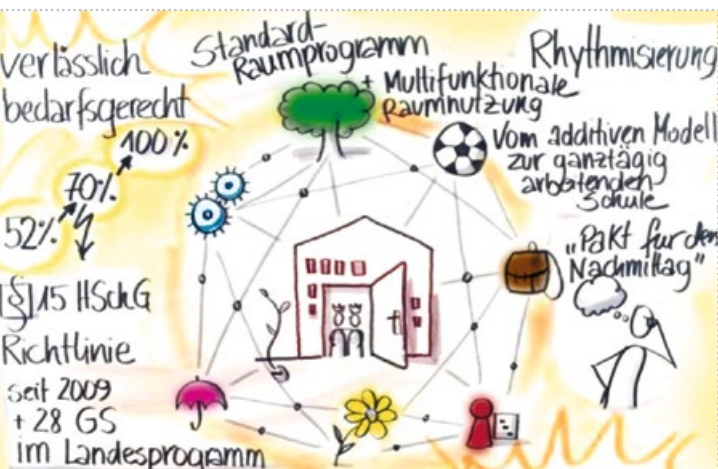 verlässlich
bedarfsgerecht
100%
70%
52%
[§] 15 HSchG
Richtlinie
seit 2009
+ 28 GS
im Landesprogramm
Standard-
Raumprogramm
+ Multifunktionale
Raumnutzung
Rhythmisierung
Vom additiven Modell
zur ganztägig
arbeitenden
Schule
"Pakt für den
Nachmittag"